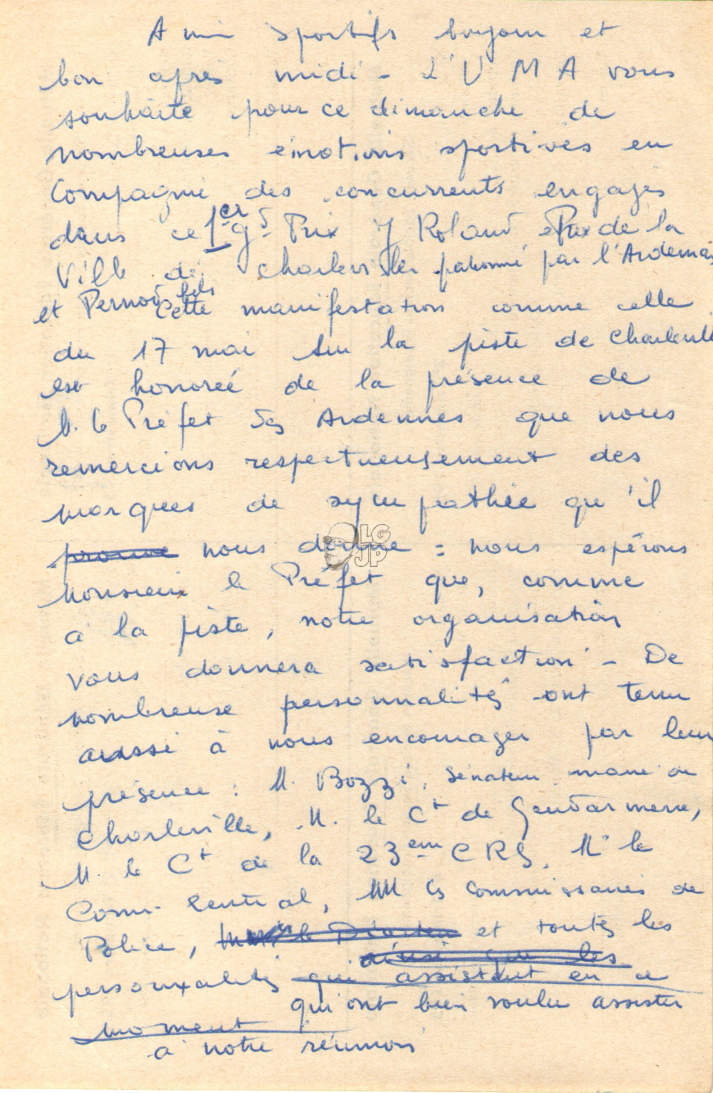 Ami sportifs bonjour et
bon après midi - L'U M A vous
souhaite pour ce dimanche de
nombreuses émotions sportives en
Compagnie des concurrents engagés
dans ce 1er gd Prix J Roland et Prix de la
Ville de Charleville patronné par l'Ardennais
et Pernod fils Cette manifestation comme celle
du 17 mai sur la piste de Charleville
est honorée de la présence de
M. le Préfet des Ardennes que nous
remercions respectueusement des
marques de sympathie qu'il
prouve nous donne : nous espérons
Monsieur le Préfet que, comme
à la piste, notre organisation
vous donnera satisfaction - De
nombreuse personnalités ont tenu
aussi à nous encourager par leur
présence : M. Bozzi, Sénateur maire de
Charleville, M. le Ct de Gendarmerie,
M. le Ct de la 23em CRS, Mr le
Comm. Central, MM les Commissaires de
Police, le Directeur et toutes les
ainsi que les
personnalités qui assistent en ce
qui ont bien voulu assister
moment
à notre réunion
LG
JP